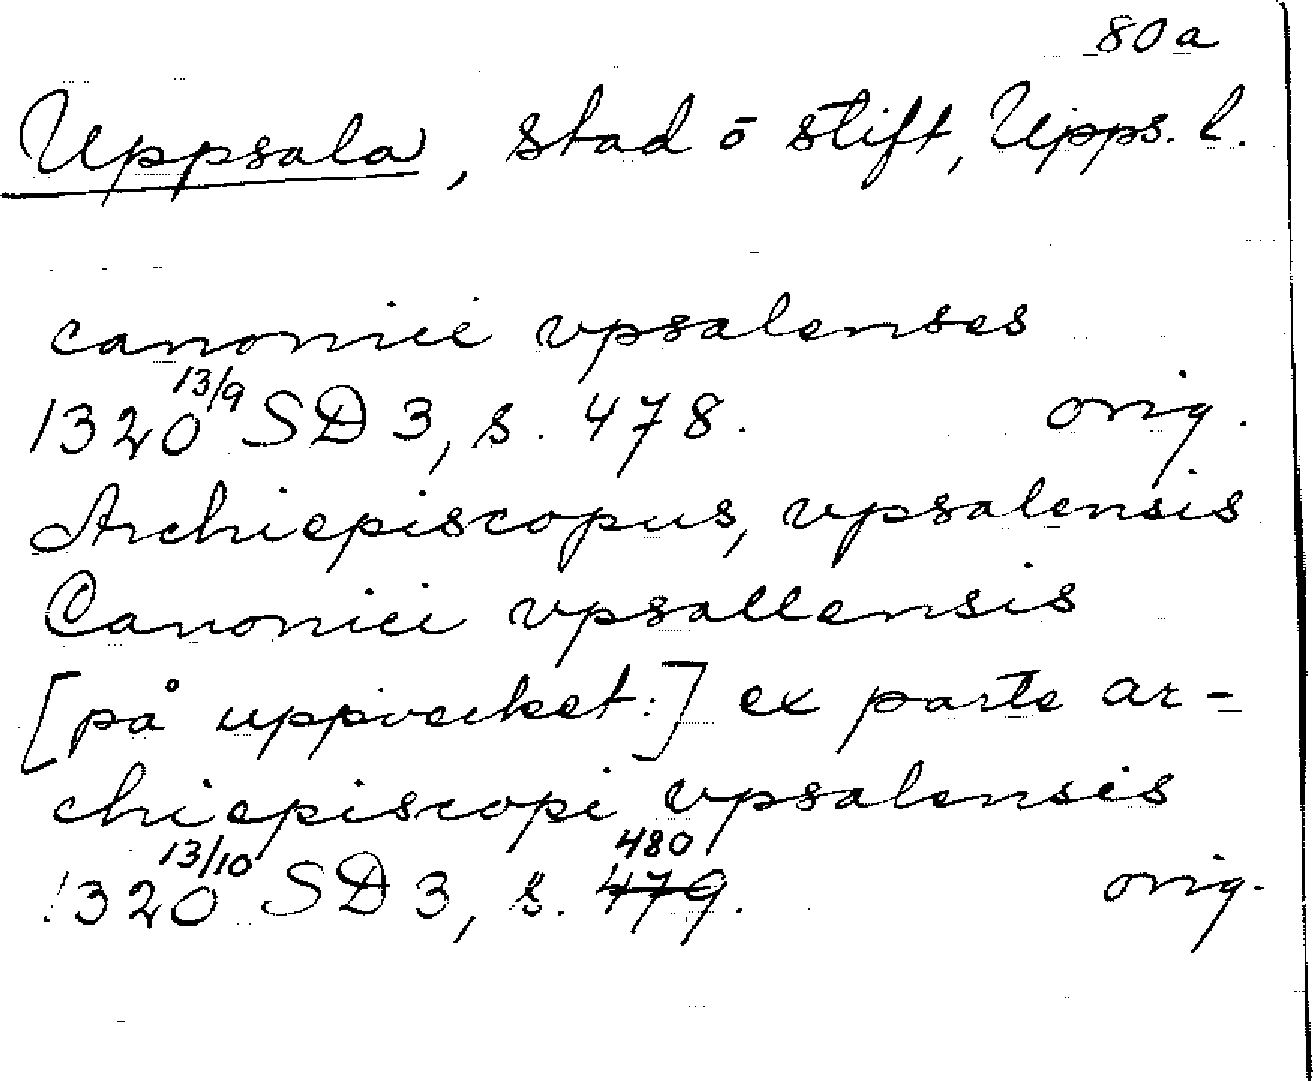 80a
Uppsala, stad ō stift, Upps. l.
canonici vpsalenses
1320 13/9 SD 3, s. 478. orig.
Archiepiscopus, vpsalensis
Canonici vpsallensis
[på uppvecket:] ex parte ar-
chiepiscopi vpsalensis
1320 13/10 SD 3, s. 479. 480 orig.